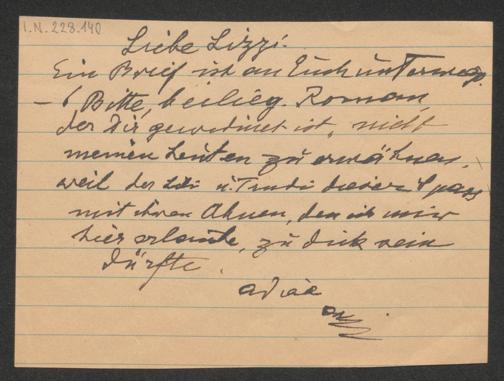 I.N. 228.140
Liebe Lizzi!
Ein Brief ist an Euch unterwegs.
– Bitte, beilieg. Roman,
der Dir gewidmet ist, nicht
meinen Leuten zu erwähnen,
weil der u. Trudi dieser Spass
mit ihren Ahnen, den ich mir
hier erlaubte, zu dick sein
dürfte.